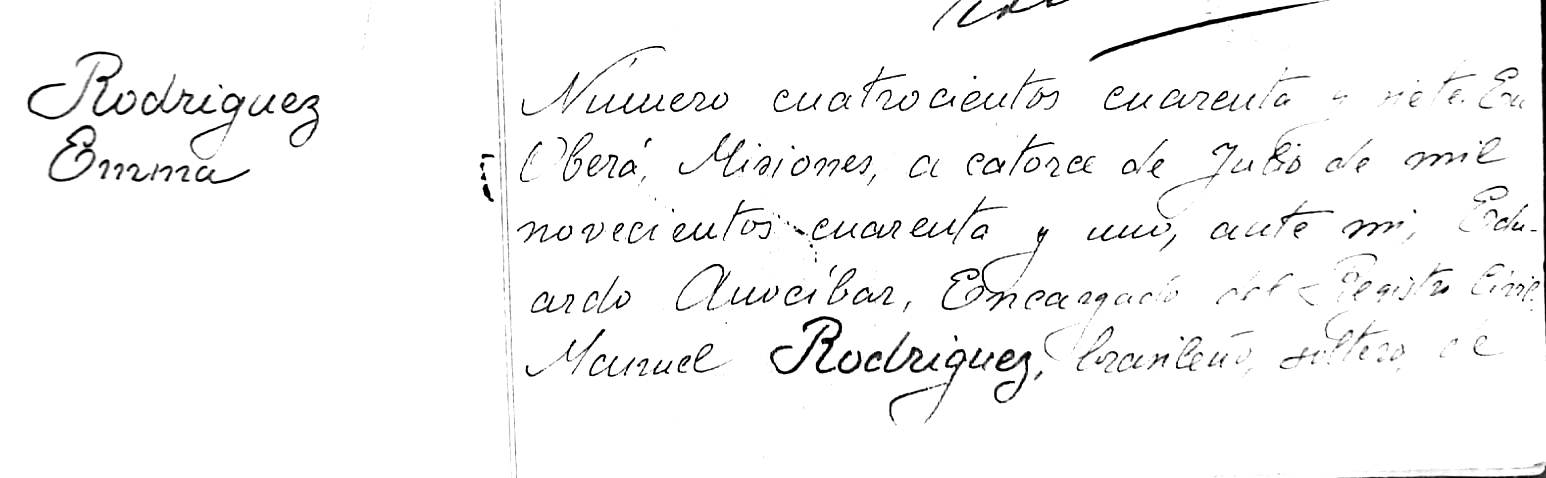 Rodriguez
Emma
Número cuatrocientos cuarenta y siete. En
Oberá, Misiones, a catorce de Julio de mil
novecientos cuarenta y uno, ante mi, Edu-
ardo Anocíbar, Encargado del Registro Civil,
Manuel Rodriguez, brasileño, soltero, de